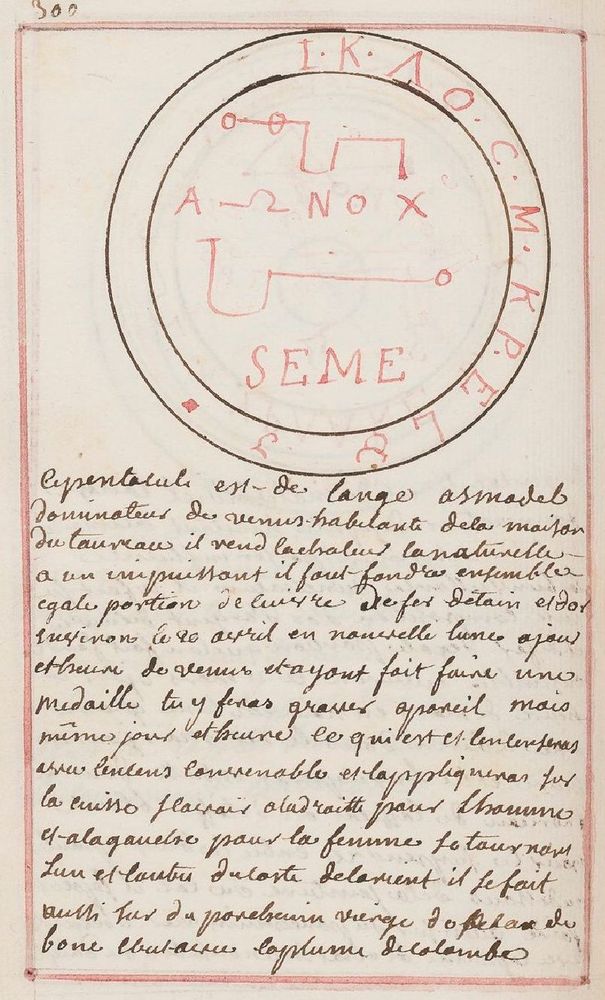 300
I·K·ΛO·C·M·KPELB3
A Ω N O X
SEME
ce pentacule est de lange asmodel
dominateur de venus habitante de la maison
du taureau il rend lachaleur lanaturelle
a un impuissant il faut fondre ensemble
egale portion de cuivre de fer detain et dor
environ le 20 avril en nouvelle lune a jour
et heure de venus et ayant fait faire une
medaille tu y feras graver apareil mois
même jour et heure ce qui est et lencenseras
avec lencens convenable et lappliqueras sur
la cuisse aladroitte pour lhomme
et alagauche pour la femme se tournant
lun et lautre ducoste delorient il se fait
aussi sur du parchemin vierge de
bouc avec laplume decolombe